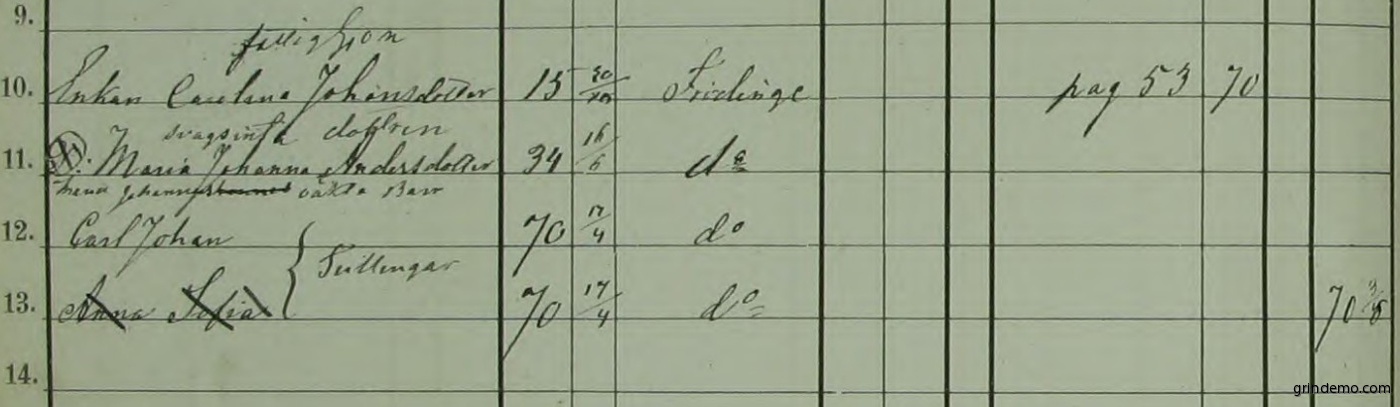 9.
fattighjon
10. Enkan Carolina Johansdotter 15 30/10 Fridlinge pag 53 70
svagsinta dottren
11. Maria Johanna Andersdotter 34 16/6 do
oäkta Barn
12. Carl Johan 70 17/4 do
Tvillingar
13. Anna Sofia 70 17/4 do 70 3/8
14.
grindemo.com